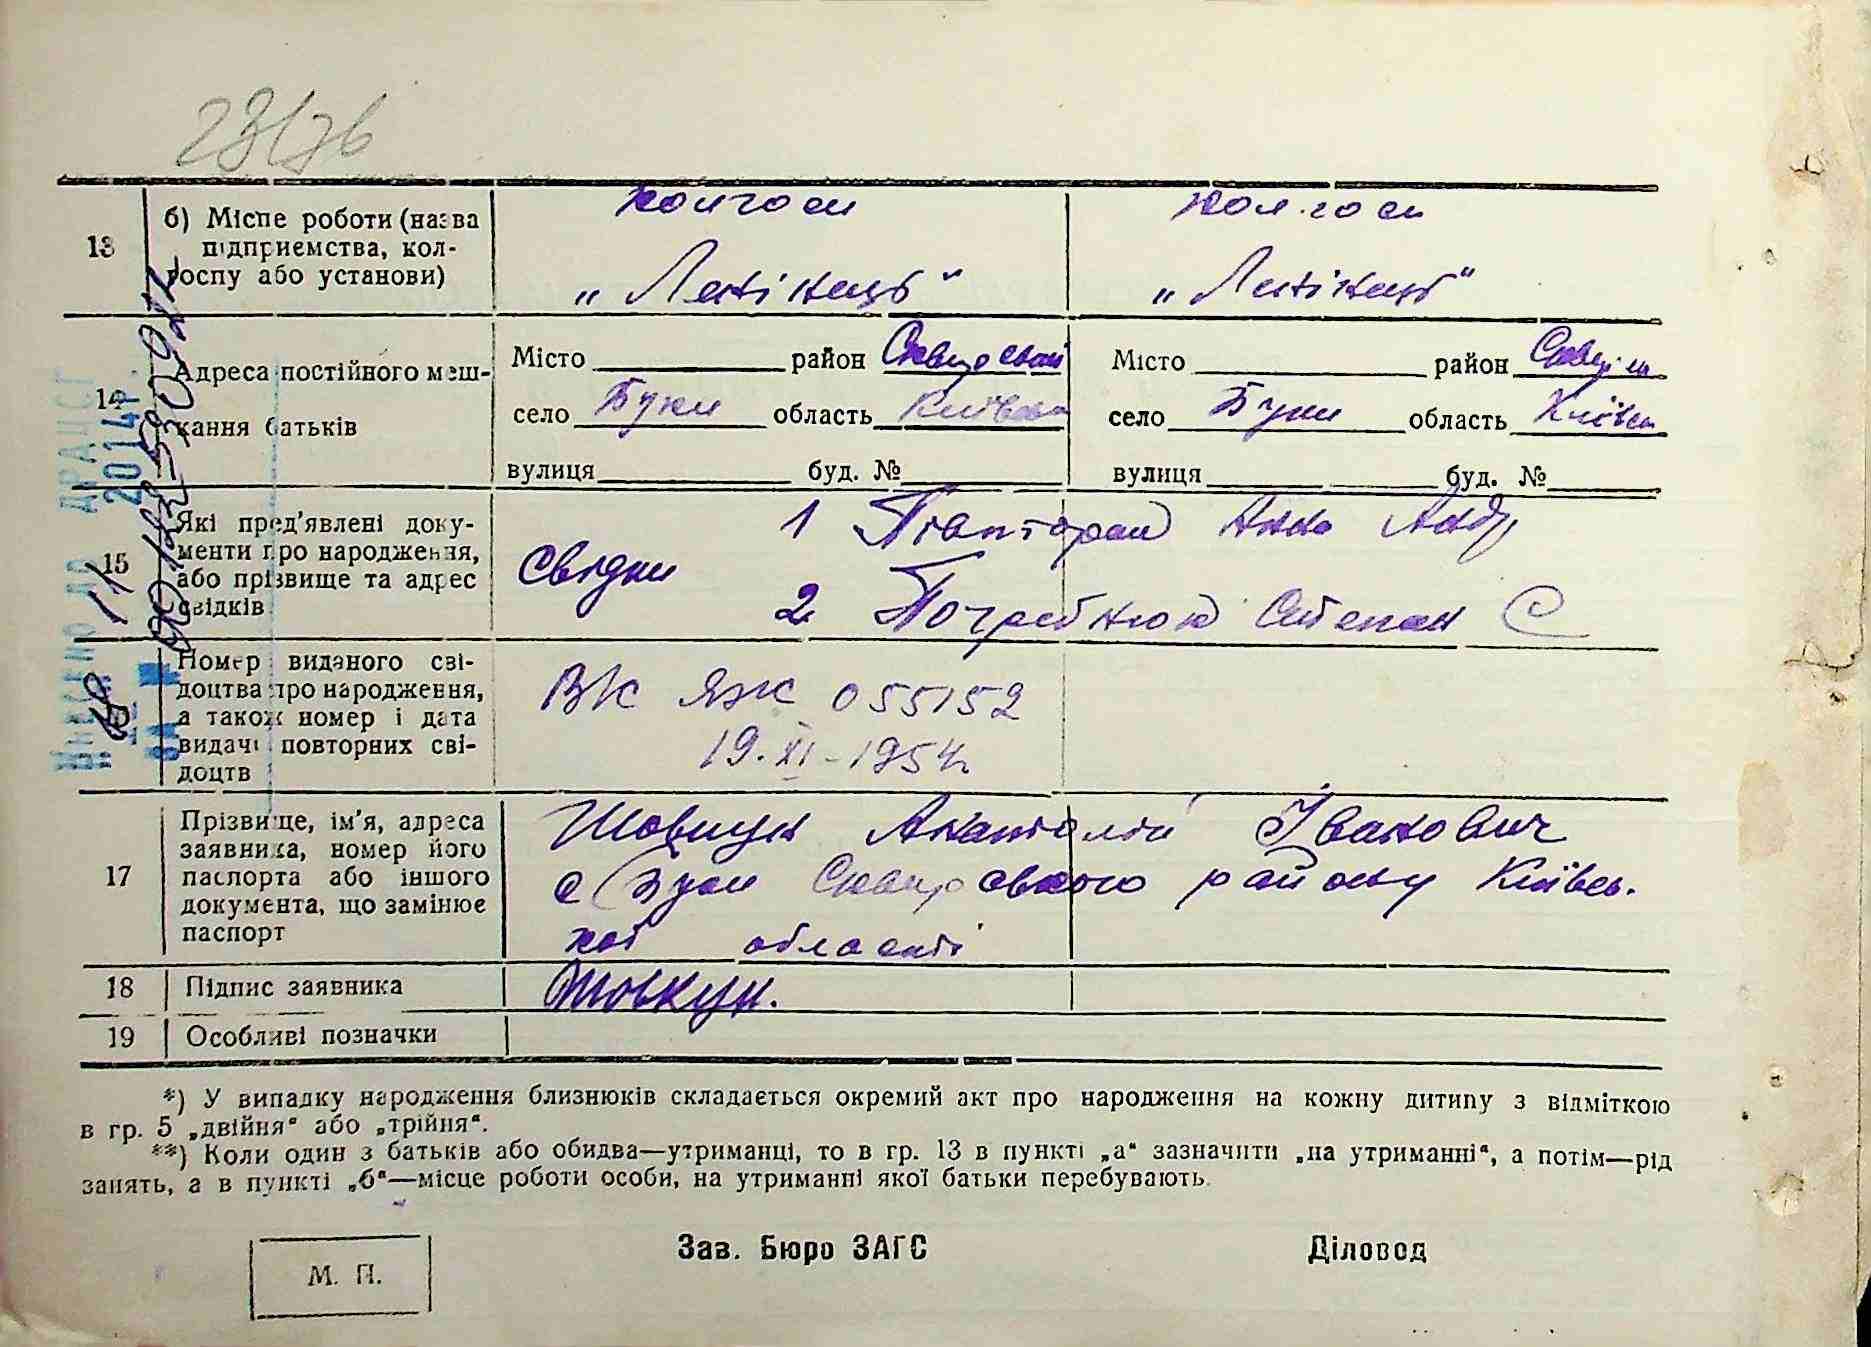 13
б) Місце роботи (назва
підприємства, кол-
госпу або установи)
колгосп
„Ленінець“
колгосп
„Ленінець“
14
Адреса постійного меш-
кання батьків
Місто район Сквирський
село Буки область Київська
вулиця буд. №
Місто район
село Буки область Київськ
вулиця буд. №
15
Які пред'явлені доку-
менти про народження,
або прізвище та адрес
свідків
Свідки
1 Півторан Анна Андр
2 Погребнюк Степан С
Номер виданого сві-
доцтва про народження,
а також номер і дата
видачі повторних сві-
доцтв
ЯЖ 055152
19.XI-1954р
17
Прізвище, ім'я, адреса
заявника, номер його
паспорта або іншого
документа, що замінює
паспорт
Шовкун Анатолій Іванович
с Буки Сквирського району Київсь-
кої області
18
Підпис заявника
Шовкун.
19
Особливі позначки
*) У випадку народження близнюків складається окремий акт про народження на кожну дитину з відміткою
в гр. 5 „двійня“ або „трійня“.
**) Коли один з батьків або обидва—утриманці, то в гр. 13 в пункті „а“ зазначити „на утриманні“, а потім—рід
занять, а в пункті „б“—місце роботи особи, на утриманні якої батьки перебувають.
М. П.
Зав. Бюро ЗАГС
Діловод
ВНЕСЕНО ДО ДРАЦСГ
2014р.